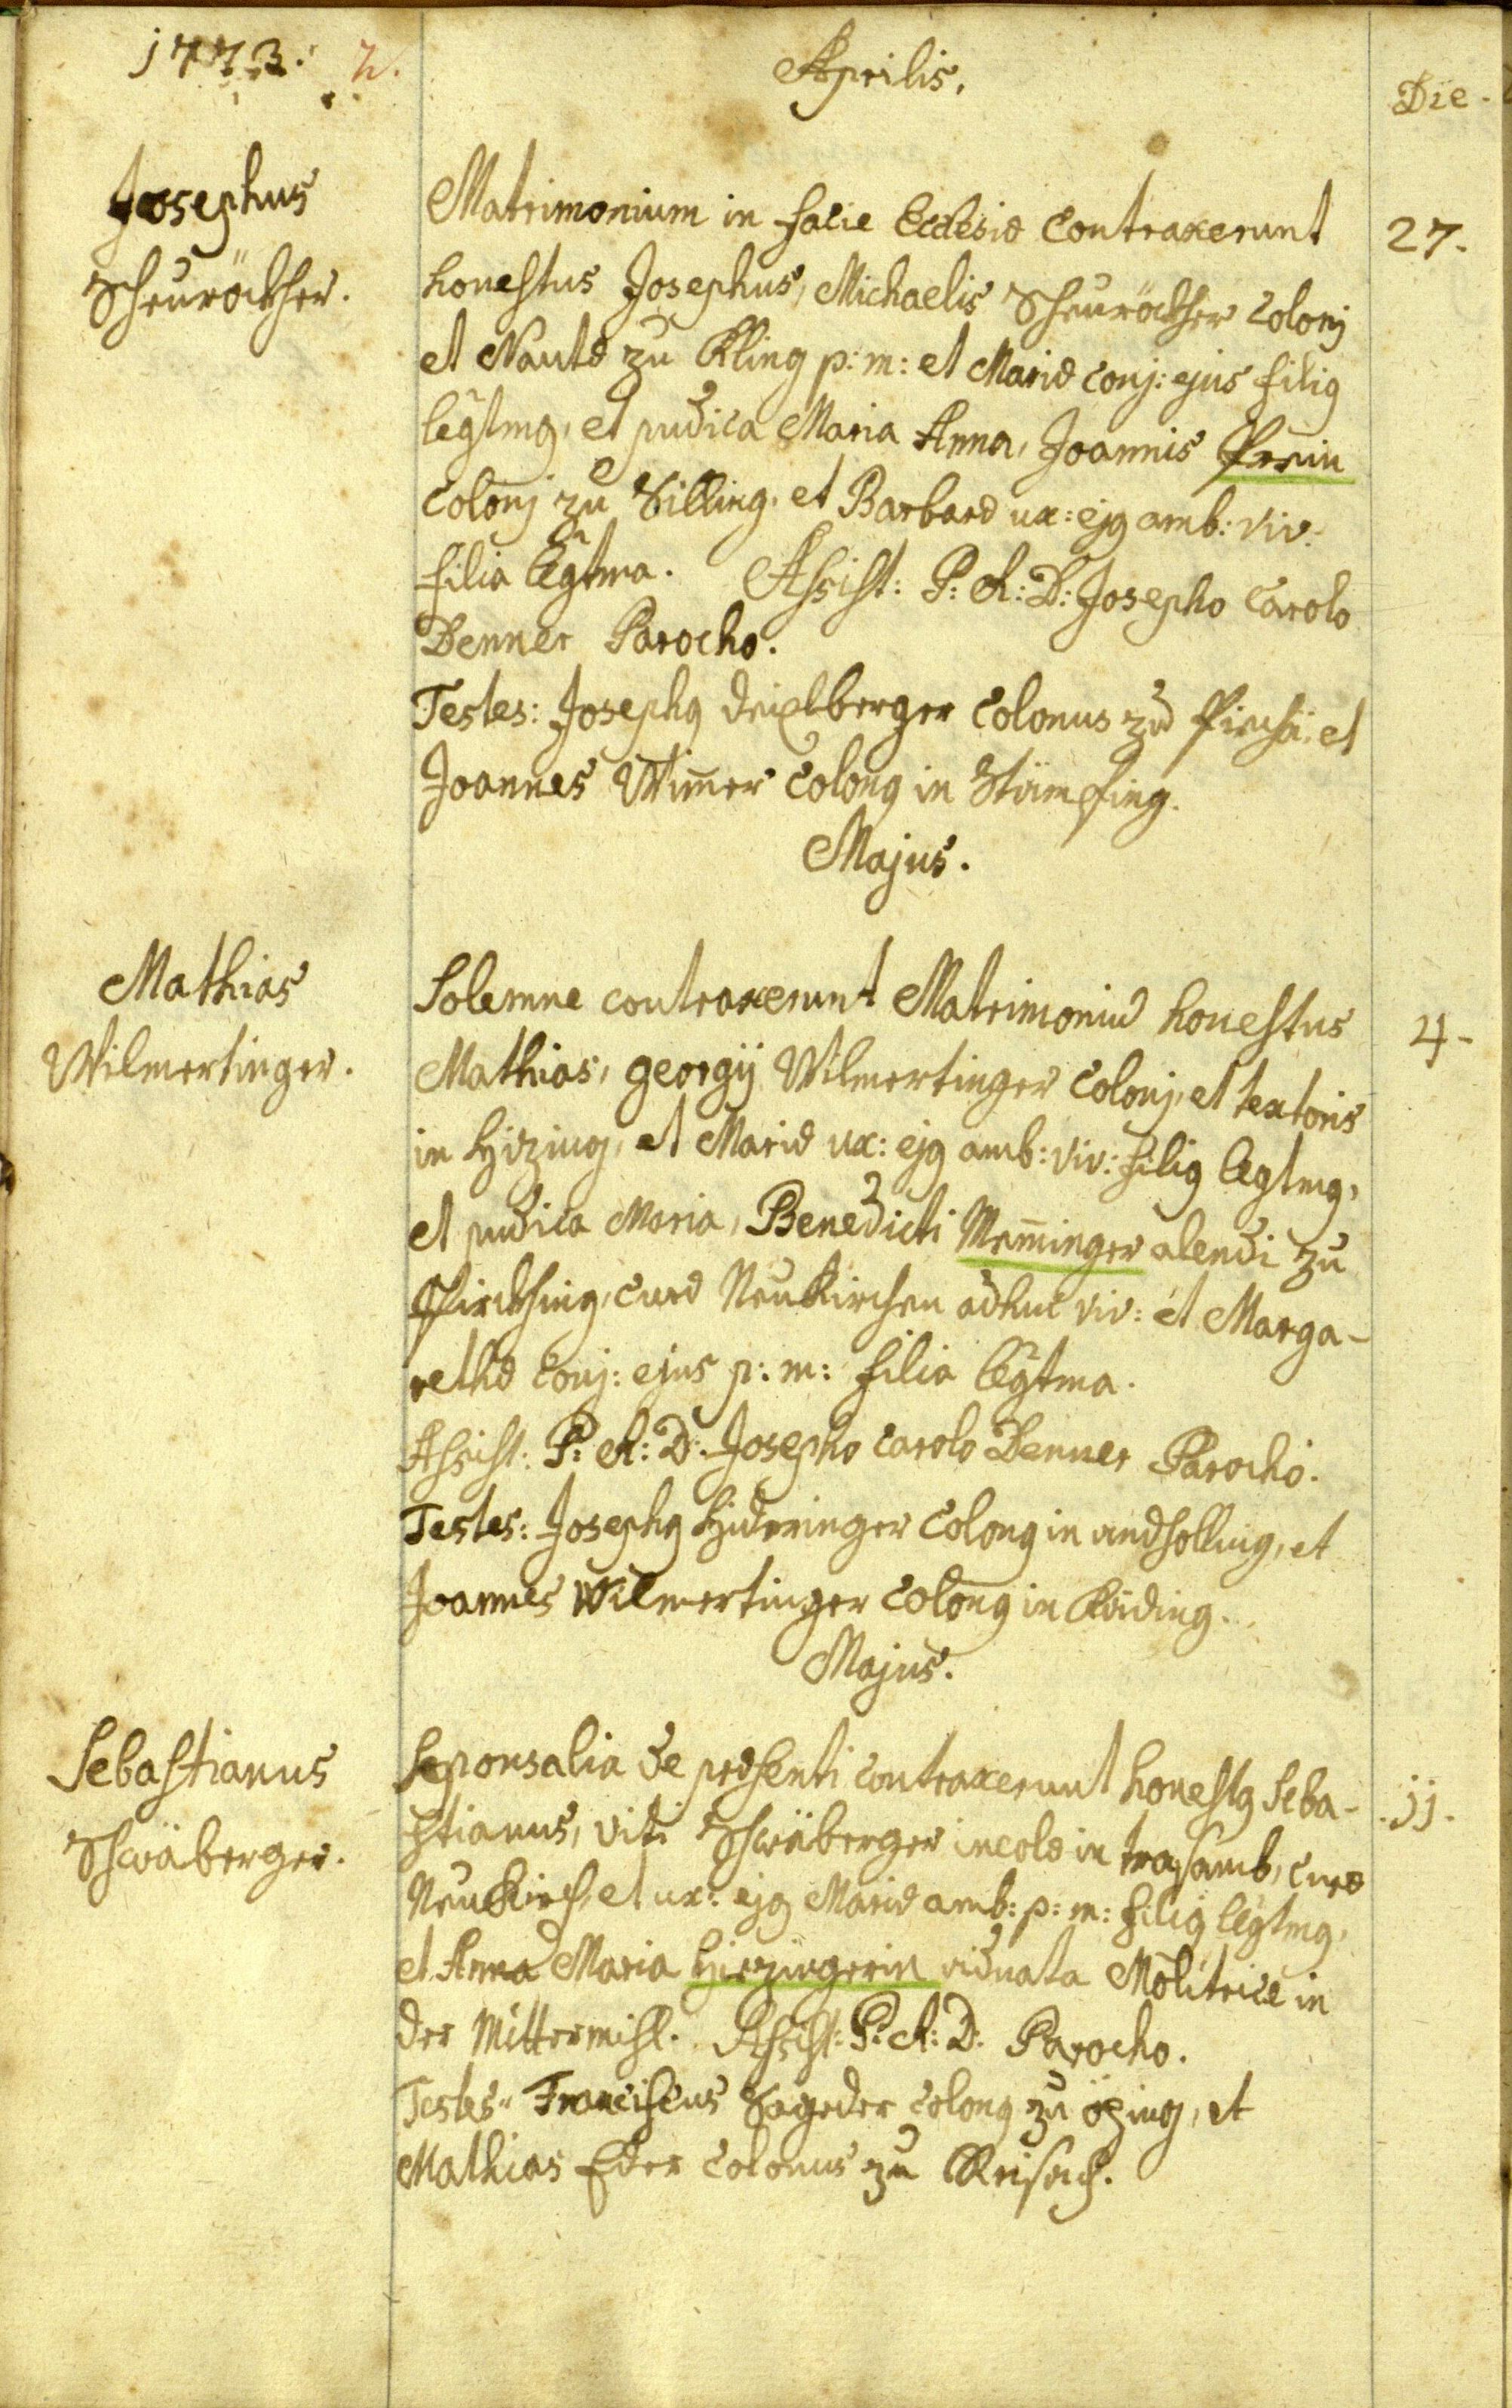 1773. 2.
Aprilis.
Die.
Josephus
Scheuröckher.
Matrimonium in facie Ecclesiæ contraxerunt
27.
honestus Josephus, Michaelis Scheuröckher Colonj
et Nautæ zu Kling p: m: et Mariæ conj: ejus filig
legtmg, et pudica Maria Anna, Joannis
Colonj zu Silling, et Barbaræ ux: ejg amb: viv:
filia legtma. Assist: P: R: D: Josepho Carolo
Denner Parocho.
Testes: Josephg Deixlberger Colonus zu et
Joannes Wim̄er Colong in Stämpfing.
Majus.
Mathias
Wilmertinger.
Solemne contraxerunt Matrimoniū honestus
4.
Mathias, georgij Wilmertinger Colonj, et textoris
in Hizing, et Mariæ ux: ejg amb: viv: filig legtmg,
et pudica Maria, Benedicti Mem̄inger alendi zu
Pirckhing, curæ Neukirchen adhuc viv: et Marga-
rethæ conj: ejus p: m: filia legtma.
Assist: P: R: D: Josepho Carolo Denner Parocho.
Testes: Josephg Colong in andholling, et
Joannes Wilmertinger Colong in
Majus.
Sebastianus
Schwäberger.
Sponsalia de præsenti contraxerunt honestg Seba-
11.
stianus, viti Schwäberger incolæ in curæ
Neukirch, et ux: ejg Mariæ amb: p: m: filig legtmg,
et Anna Maria Hizingerin viduata Molitrice in
der Mittermihl. Assist: P: R: D: Parocho.
Testes: Franciscus Sageder Colong zu özing, et
Mathias Eder Colonus zu